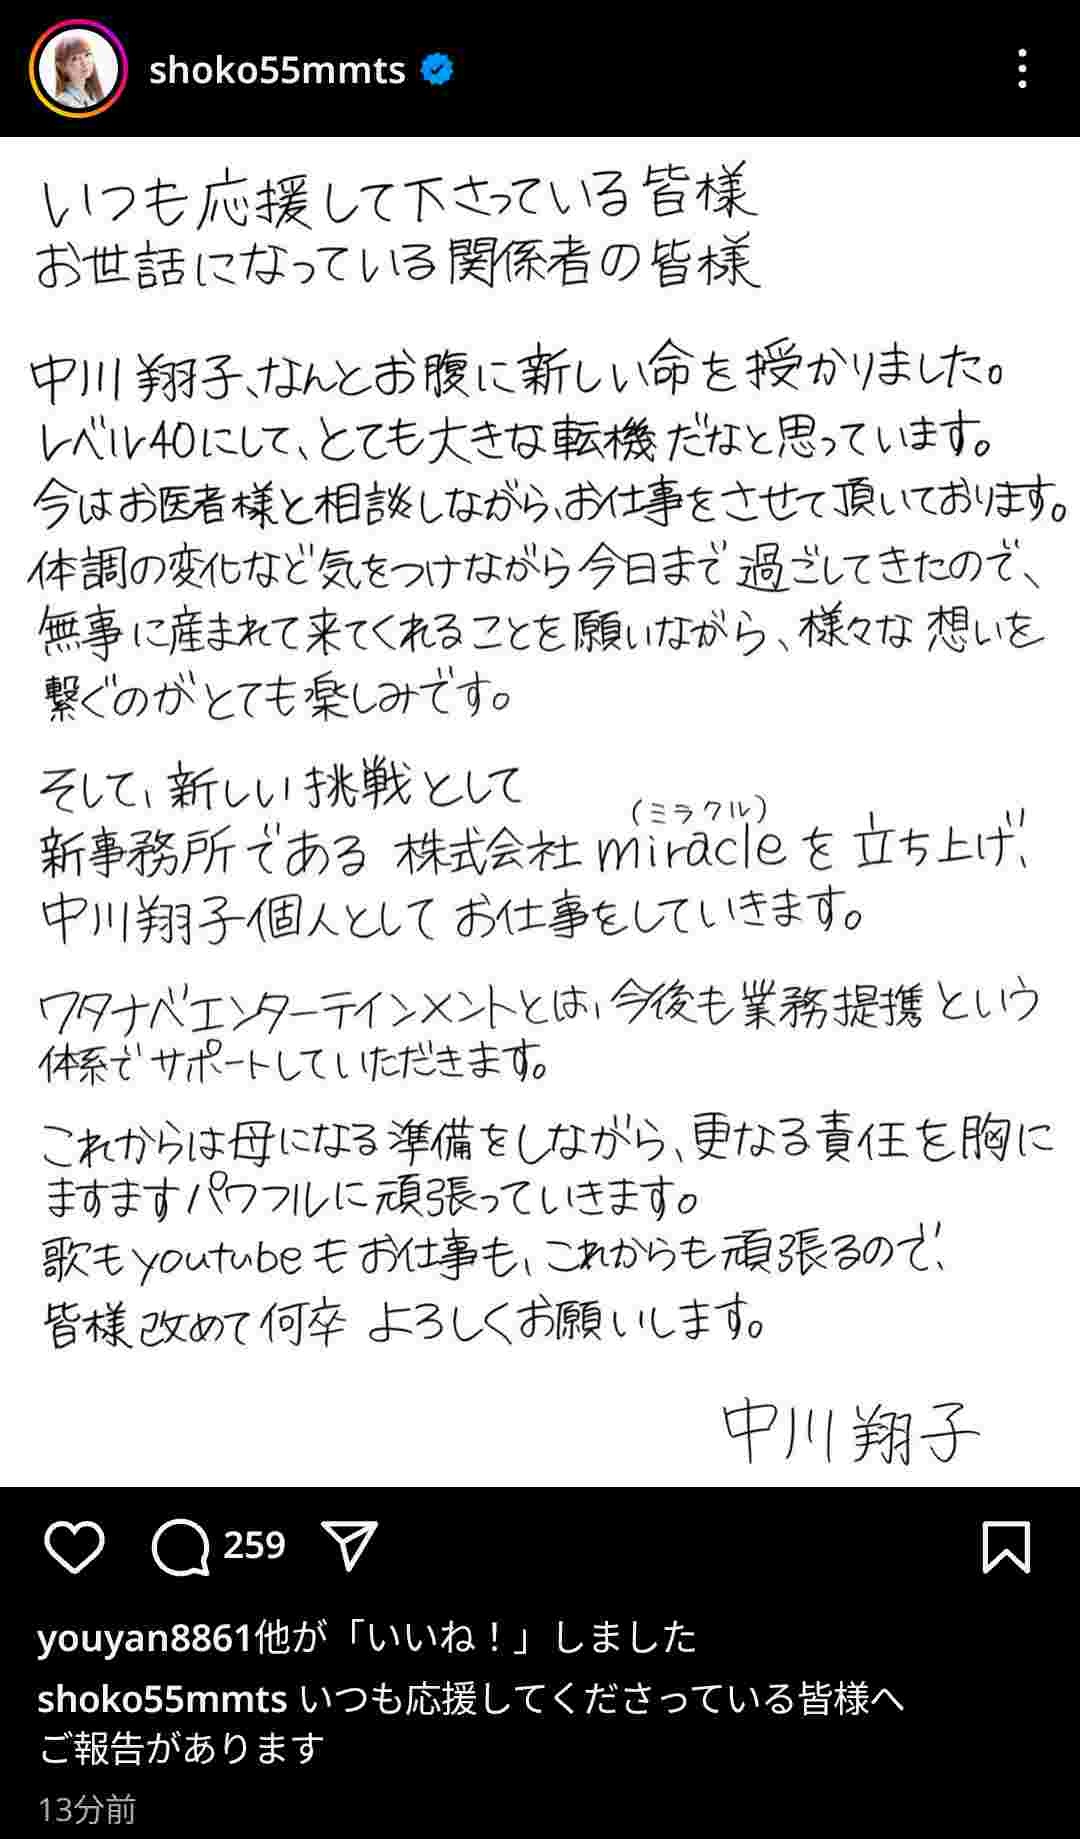 shoko55mmts
いつも応援して下さっている皆様
お世話になっている関係者の皆様
中川翔子、なんとお腹に新しい命を授かりました。
レベル40にして、とても大きな転機だなと思っています。
今はお医者様と相談しながら、お仕事をさせて頂いております。
体調の変化など気をつけながら今日まで過ごしてきたので、
無事に産まれて来てくれることを願いながら、様々な想いを
繋ぐのがとても楽しみです。
そして、新しい挑戦として
(ミラクル)
新事務所である 株式会社miracleを立ち上げ、
中川翔子個人としてお仕事をしていきます。
ワタナベエンターテインメントとは、今後も業務提携という
体系でサポートしていただきます。
これからは母になる準備をしながら、更なる責任を胸に
ますますパワフルに頑張っていきます。
歌もyoutubeもお仕事も、これからも頑張るので、
皆様改めて何卒 よろしくお願いします。
中川翔子
259
youyan8861他が「いいね！」しました
shoko55mmts いつも応援してくださっている皆様へ
ご報告があります
13分前